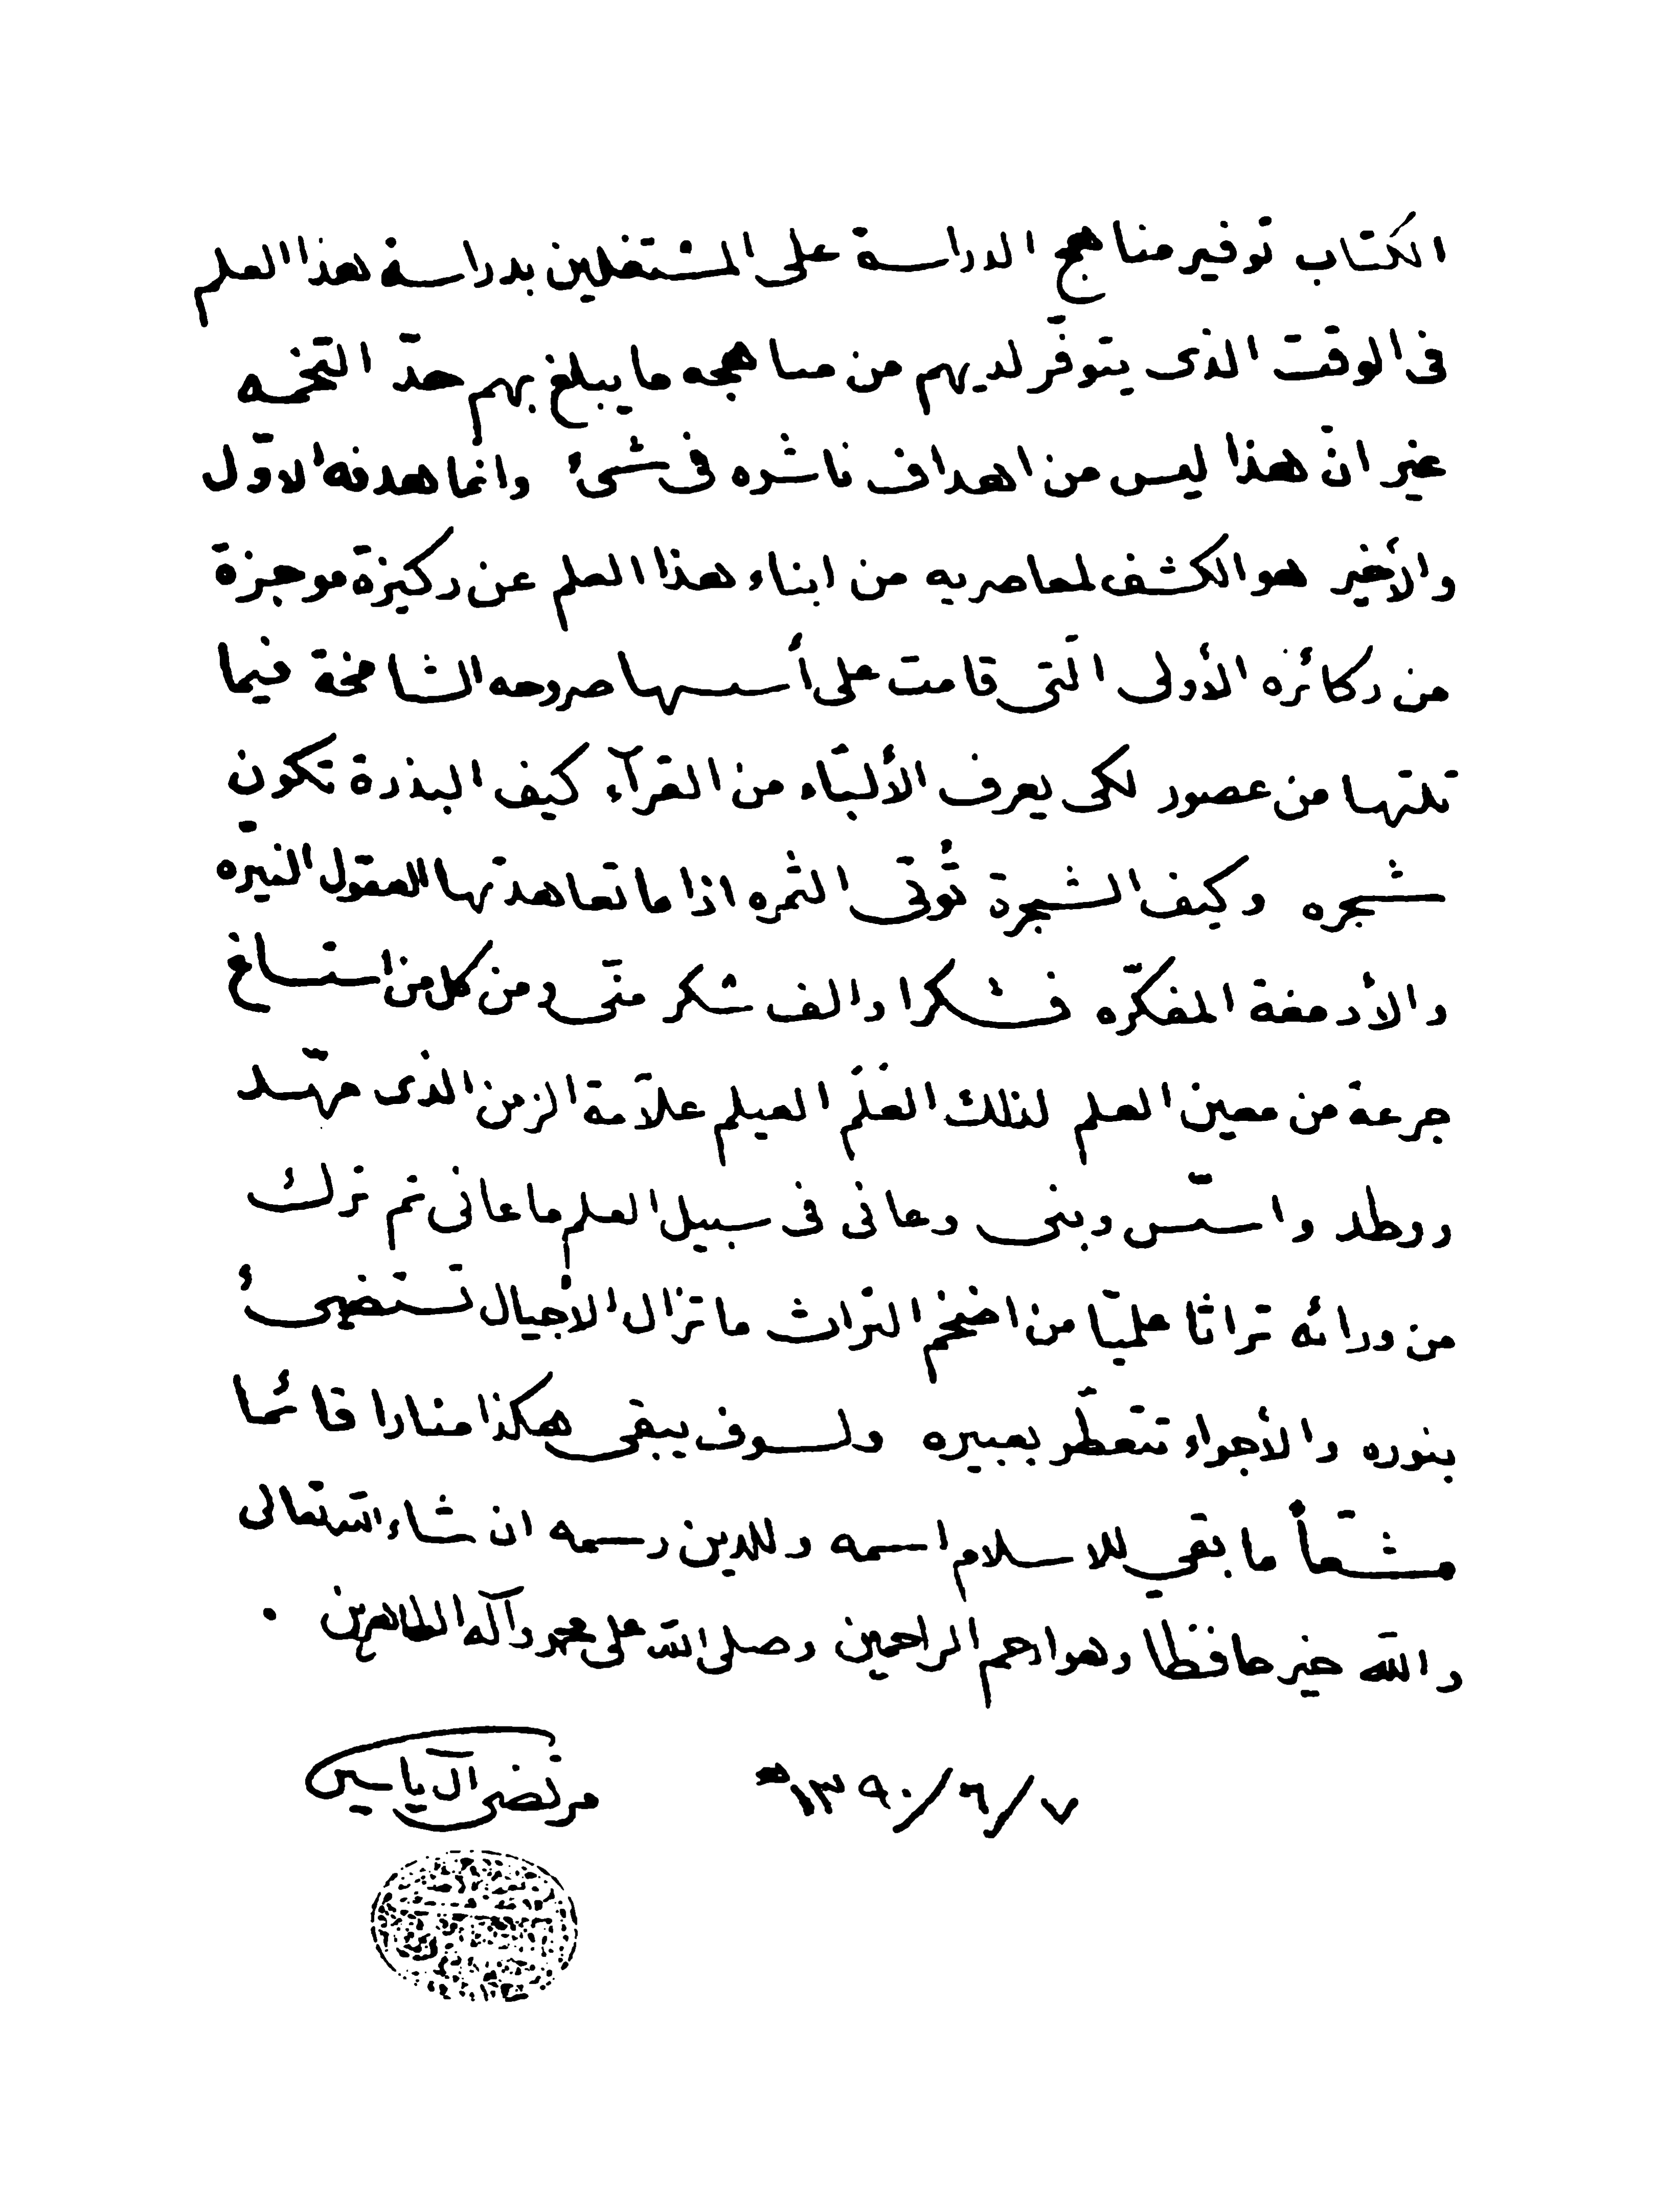 الكتاب توفير مناهج الدراسة على المشتغلين بدراسة هذا العلم
فى الوقت الذى يتوفّر لديهم من مناهجه ما يبلغ بهم حدّ التخمه
غير انّ هذا ليس من اهداف ناشره فى شىء وانّما هدفه الاوّل
والأخير هو الكشف لمعاصريه من ابناء هذا العلم عن ركيزة موجزة
من ركائزه الأولى الّتى قامت على أسسها صروحه الشامخة فيما
تلتها من عصور لكى يعرف الألبّاء من القرآء كيف البذرة تكون
شجره وكيف الشجرة تُؤتى الثمره اذا ما تعاهدتها العقول النيّره
والأدمغة المفكّره فشكرا والف شكر منّى ومن كل من استساغ
جرعة من معين العلم لذلك العَلَم العيلم علاّمة الزمن الذى مهّد
ووطد واسّس وبنى وعانى فى سبيل العلم ما عانى ثم ترك
من ورائه تراثا علميّا من اضخم التراث ما تزال الأجيال تستضىء
بنوره والأجواء تتعطّر بعبيره ولسوف يبقى هكذا منارا قائما
مشعّاً ما بقي للاسلام اسمه وللدين رسمه ان شاء الله تعالى
والله خير حافظا وهو ارحم الراحمين وصلى الله على محمد وآله الطاهرين .
٧/٦/١٣٩٠هـ مرتضى آل ياسين